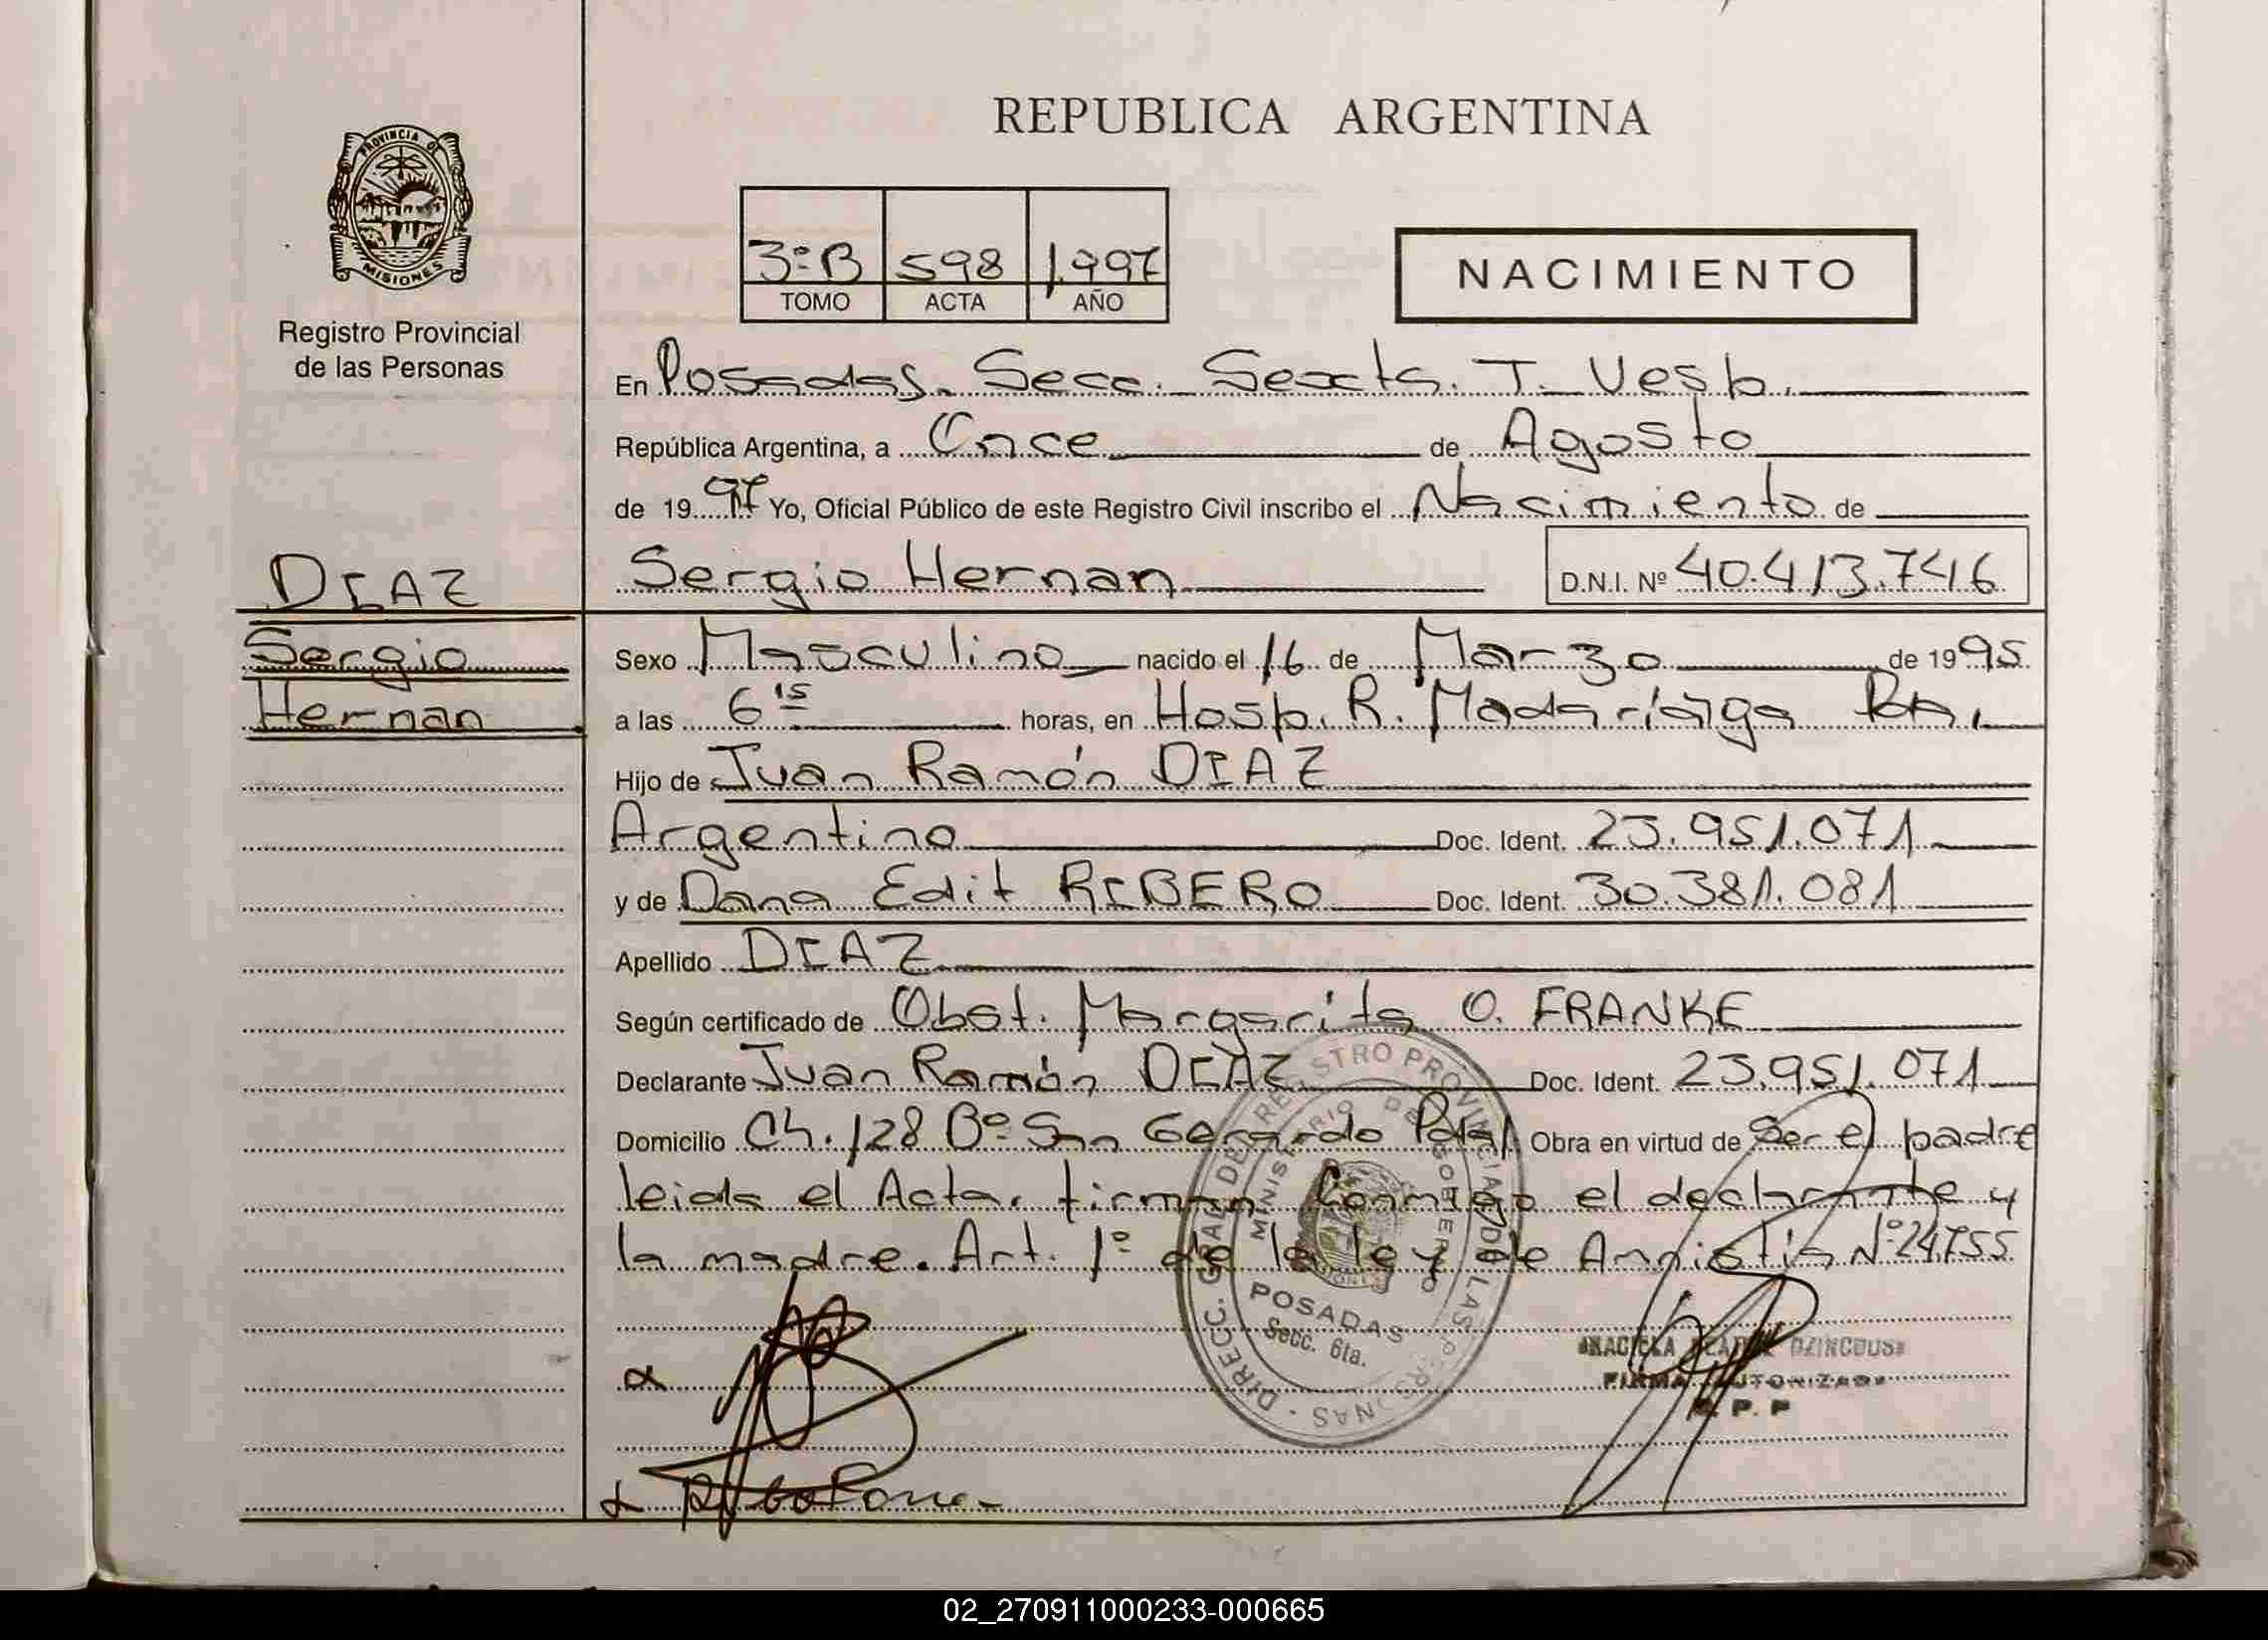 REPUBLICA ARGENTINA
PROVINCIA DE
MISIONES
Registro Provincial
de las Personas
3ºB 598 1.997
TOMO ACTA AÑO
NACIMIENTO
En Posadas. Secc. Sexta. T. Vesp.
República Argentina, a Once de Agosto
de 1997 Yo, Oficial Público de este Registro Civil inscribo el Nacimiento de
DIAZ
Sergio
Hernan
Sergio Hernan D.N.I. Nº 40.413.746
Sexo Masculino nacido el 16 de Marzo de 1995
a las 6 15 horas, en Hosp. R. Madariaga
Hijo de Juan Ramón DIAZ
Argentino Doc. Ident. 23.951.071
y de Dana Edit RIBERO Doc. Ident. 30.381.081
Apellido DIAZ
Según certificado de Obst. Margarita O. FRANKE
Declarante Juan Ramón DIAZ Doc. Ident. 23.951.071
Domicilio Ch. 128 Bº San Gerardo Pdas Obra en virtud de Ser el padre
leida el Acta, firman Conmigo el declarante y
la madre. Art. 1º de la ley de Amnistia Nº 24.755
DIRECC. GRAL DE REGISTRO PROVINCIAL DE LAS PERSONAS
MINISTERIO DE GOBIERNO
POSADAS
Secc. 6ta.
FIRMA AUTORIZADA
02_270911000233-000665